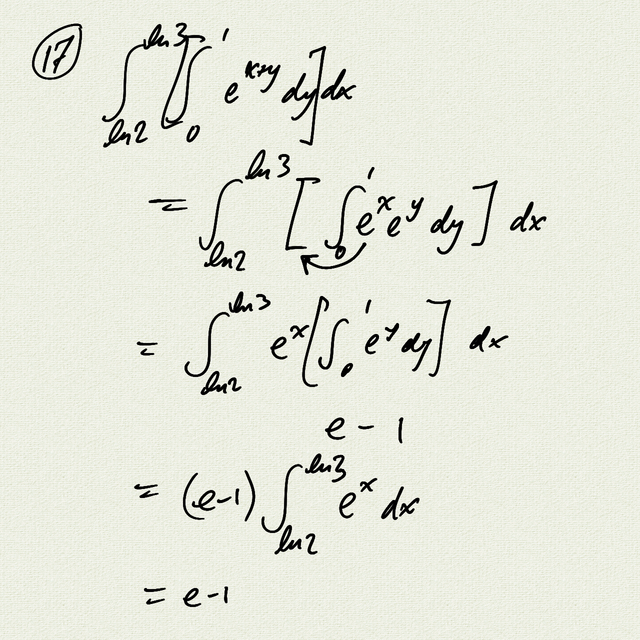 (17) ∫_{ln2}^{ln3} [∫_0^1 e^{x+y} dy] dx
= ∫_{ln2}^{ln3} [∫_0^1 e^x e^y dy] dx
= ∫_{ln2}^{ln3} e^x [∫_0^1 e^y dy] dx
e - 1
= (e-1) ∫_{ln2}^{ln3} e^x dx
= e-1